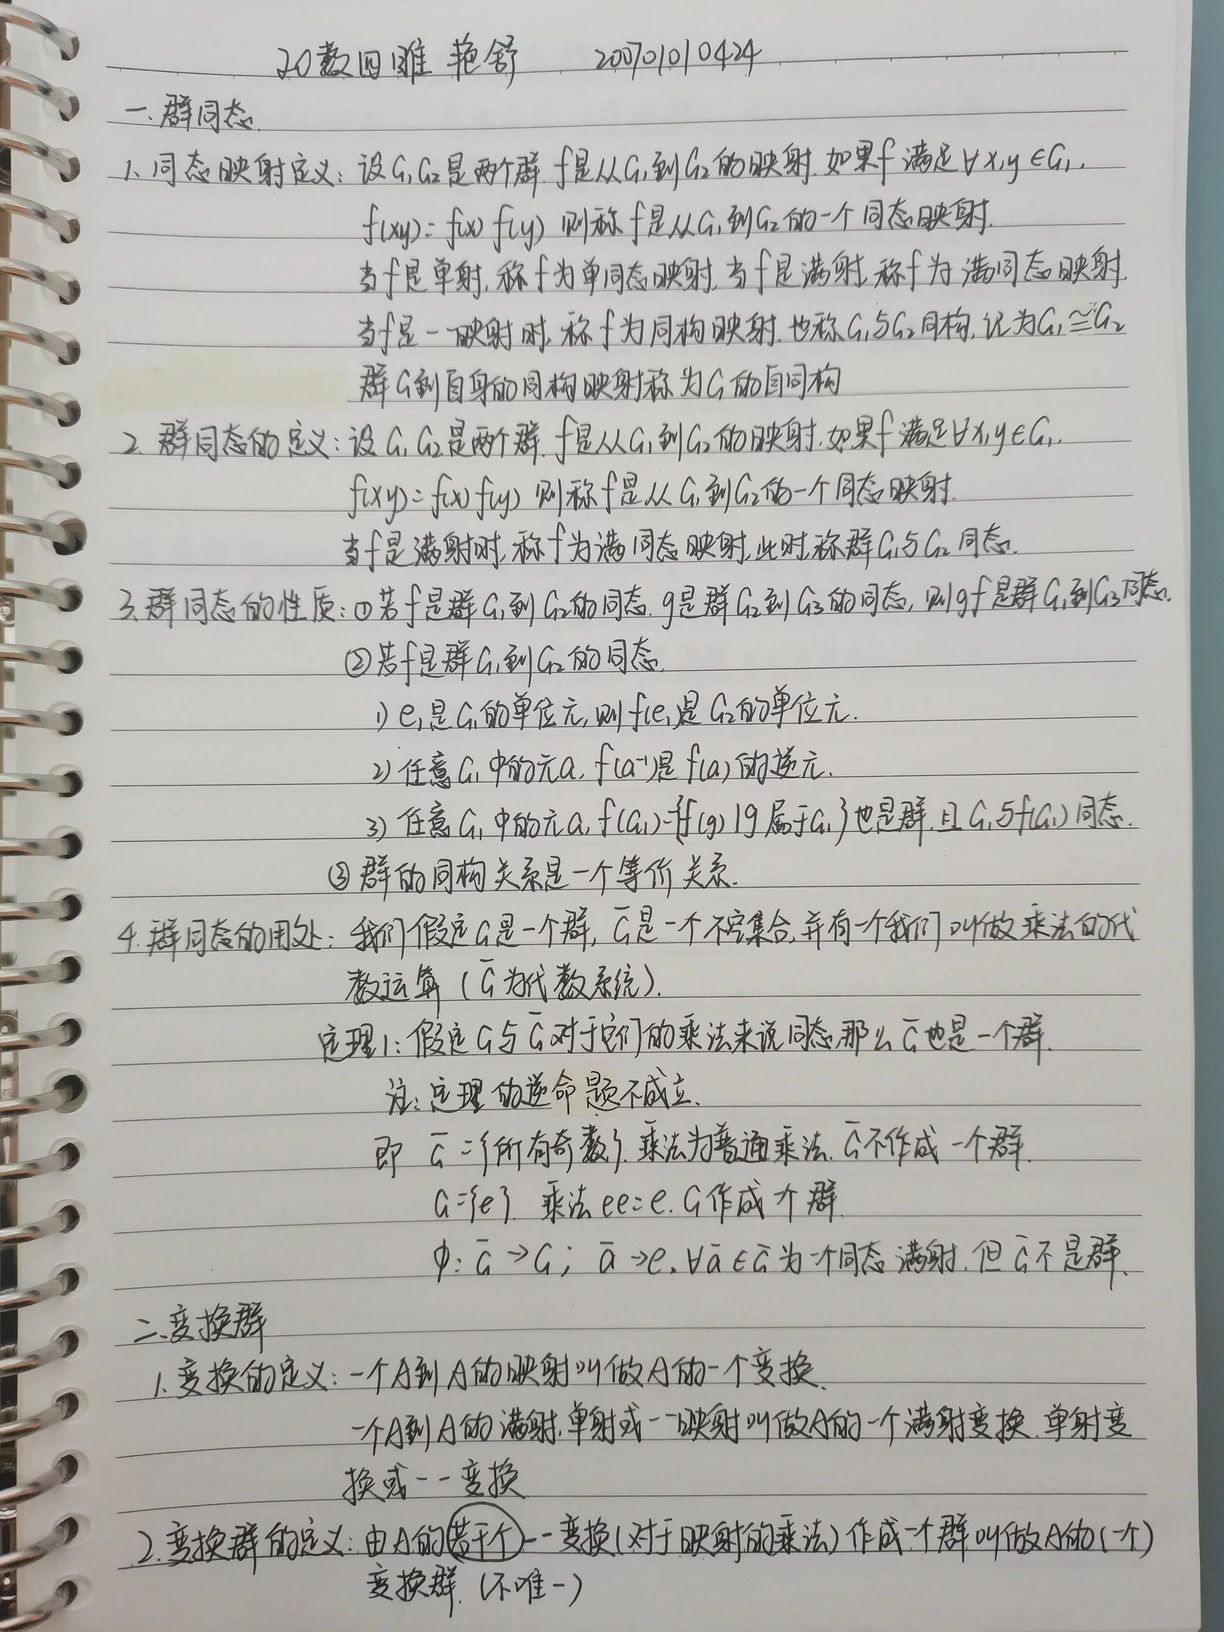 20数四雎艳舒 200701010424
一.群同态.
1.同态映射定义:设G₁,G₂是两个群.f是从G₁到G₂的映射.如果f满足∀x,y∈G₁,
f(xy)=f(x)f(y) 则称f是从G₁到G₂的一个同态映射.
当f是单射,称f为单同态映射.当f是满射,称f为满同态映射.
当f是一一映射时,称f为同构映射.也称G₁与G₂同构,记为G₁≌G₂
群G到自身的同构映射称为G的自同构
2.群同态的定义:设G₁,G₂是两个群.f是从G₁到G₂的映射.如果f满足∀x,y∈G₁.
f(xy)=f(x)f(y) 则称f是从G₁到G₂的一个同态映射.
当f是满射时,称f为满同态映射,此时,称群G₁与G₂同态.
3.群同态的性质:①若f是群G₁到G₂的同态.g是群G₂到G₃的同态,则gf是群G₁到G₃同态.
②若f是群G₁到G₂的同态.
1) e₁是G₁的单位元,则f(e₁是G₂的单位元.
2) 任意G₁中的元a,f(a⁻¹)是f(a)的逆元.
3) 任意G₁中的元a,f(G₁)={f(g)|g属于G₁}也是群.且G₁与f(G₁)同态.
③群的同构关系是一个等价关系.
4.群同态的用处:我们假定G是一个群,G̅是一个不空集合,并有一个我们叫做乘法的代
数运算(G̅为代数系统).
定理1:假定G与G̅对于它们的乘法来说同态,那么G̅也是一个群.
注:定理的逆命题不成立.
即 G̅={所有奇数}.乘法为普通乘法.G̅不作成一个群.
G={e}.乘法ee=e.G作成个群.
φ:G̅→G; a̅→e,∀a̅∈G̅为一个同态满射.但G̅不是群.
二.变换群
1.变换的定义:一个A到A的映射叫做A的一个变换.
一个A到A的满射,单射或一一映射叫做A的一个满射变换.单射变
换或一一变换
2.变换群的定义:由A的若干个一一变换(对于映射的乘法)作成一个群叫做A的(一个)
变换群.(不唯一)